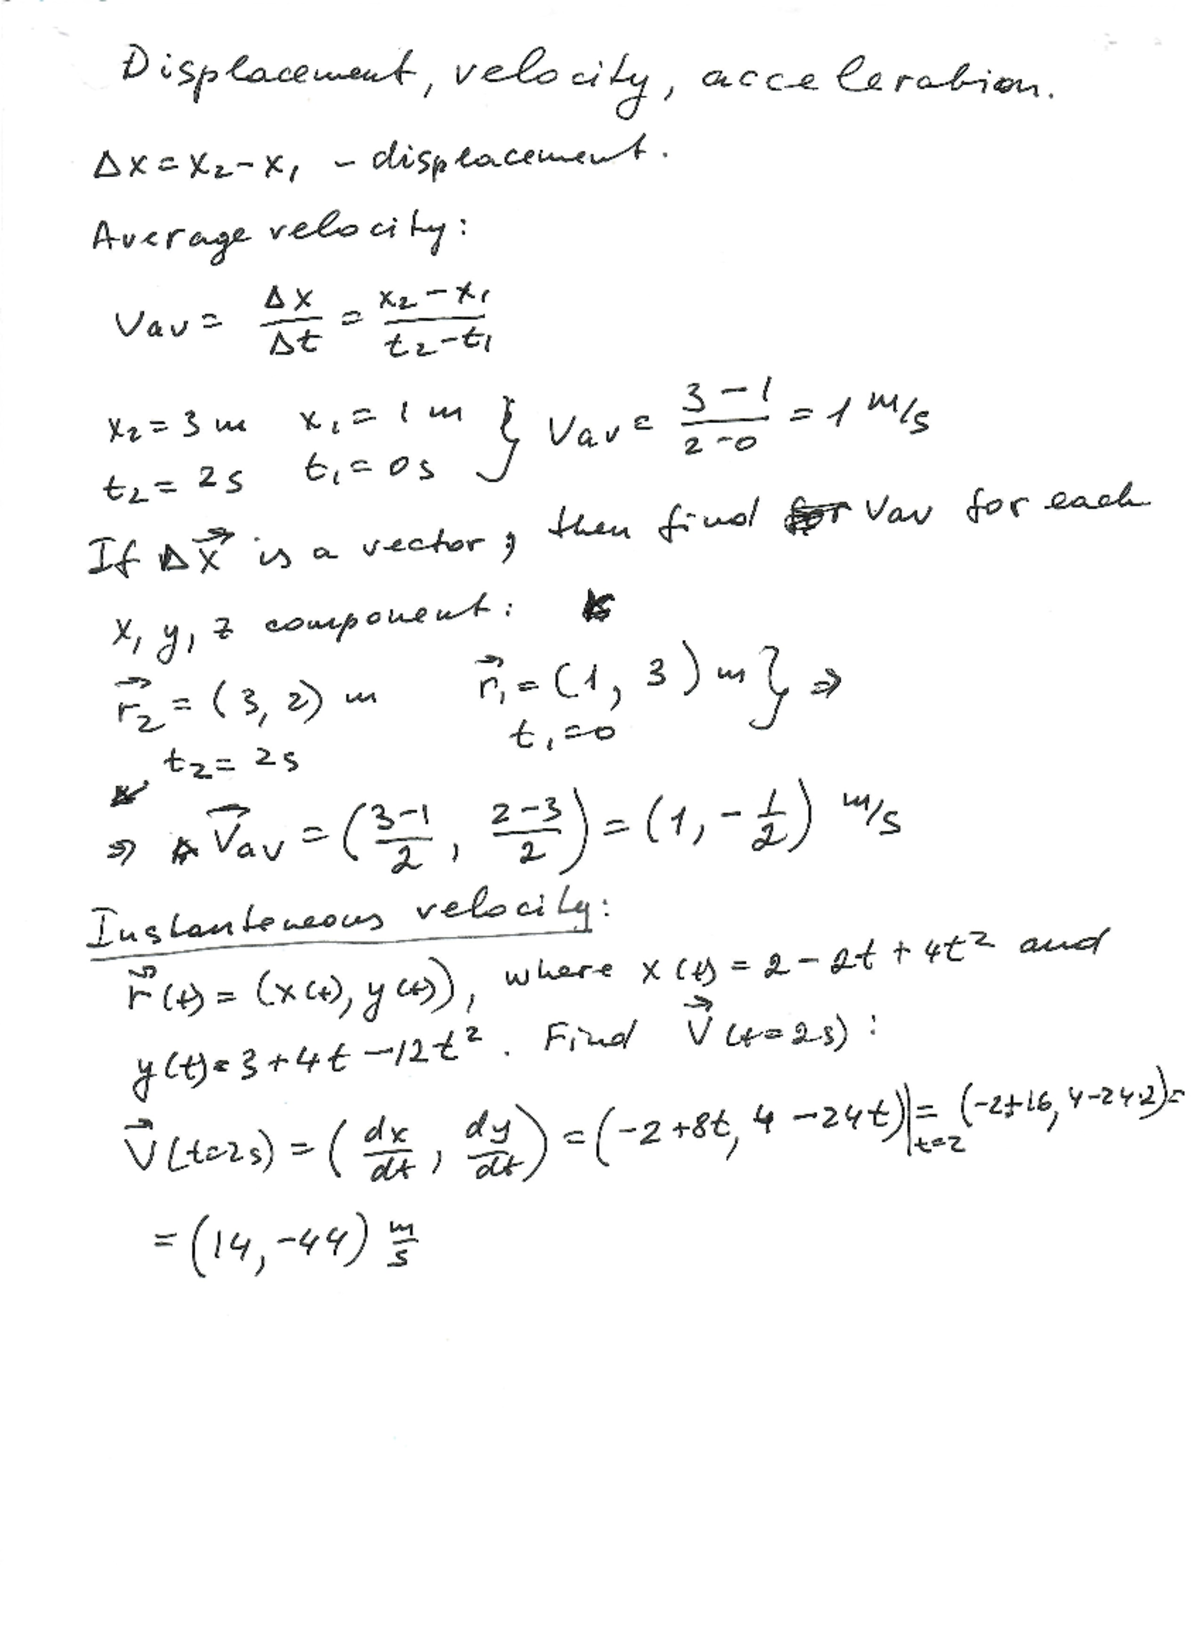 Displacement, velocity, acceleration.
Δx = x₂ - x₁ - displacement.
Average velocity:
Vav = Δx/Δt = (x₂ - x₁)/(t₂ - t₁)
x₂ = 3 m   x₁ = 1 m } Vav = (3 - 1)/(2 - 0) = 1 m/s
t₂ = 2s   t₁ = 0s
If Δx⃗ is a vector, then find Vav for each
x, y, z component:
r⃗₂ = (3, 2) m   r⃗₁ = (1, 3) m } ⇒
t₂ = 2s   t₁ = 0
⇒ V⃗av = ((3-1)/2, (2-3)/2) = (1, -1/2) m/s
Instanteneous velocity:
r⃗(t) = (x(t), y(t)), where x(t) = 2 - 2t + 4t² and
y(t) = 3 + 4t - 12t². Find V⃗(t=2s):
V⃗(t=2s) = (dx/dt, dy/dt) = (-2 + 8t, 4 - 24t)|t=2 = (-2+16, 4-24·2) =
= (14, -44) m/s